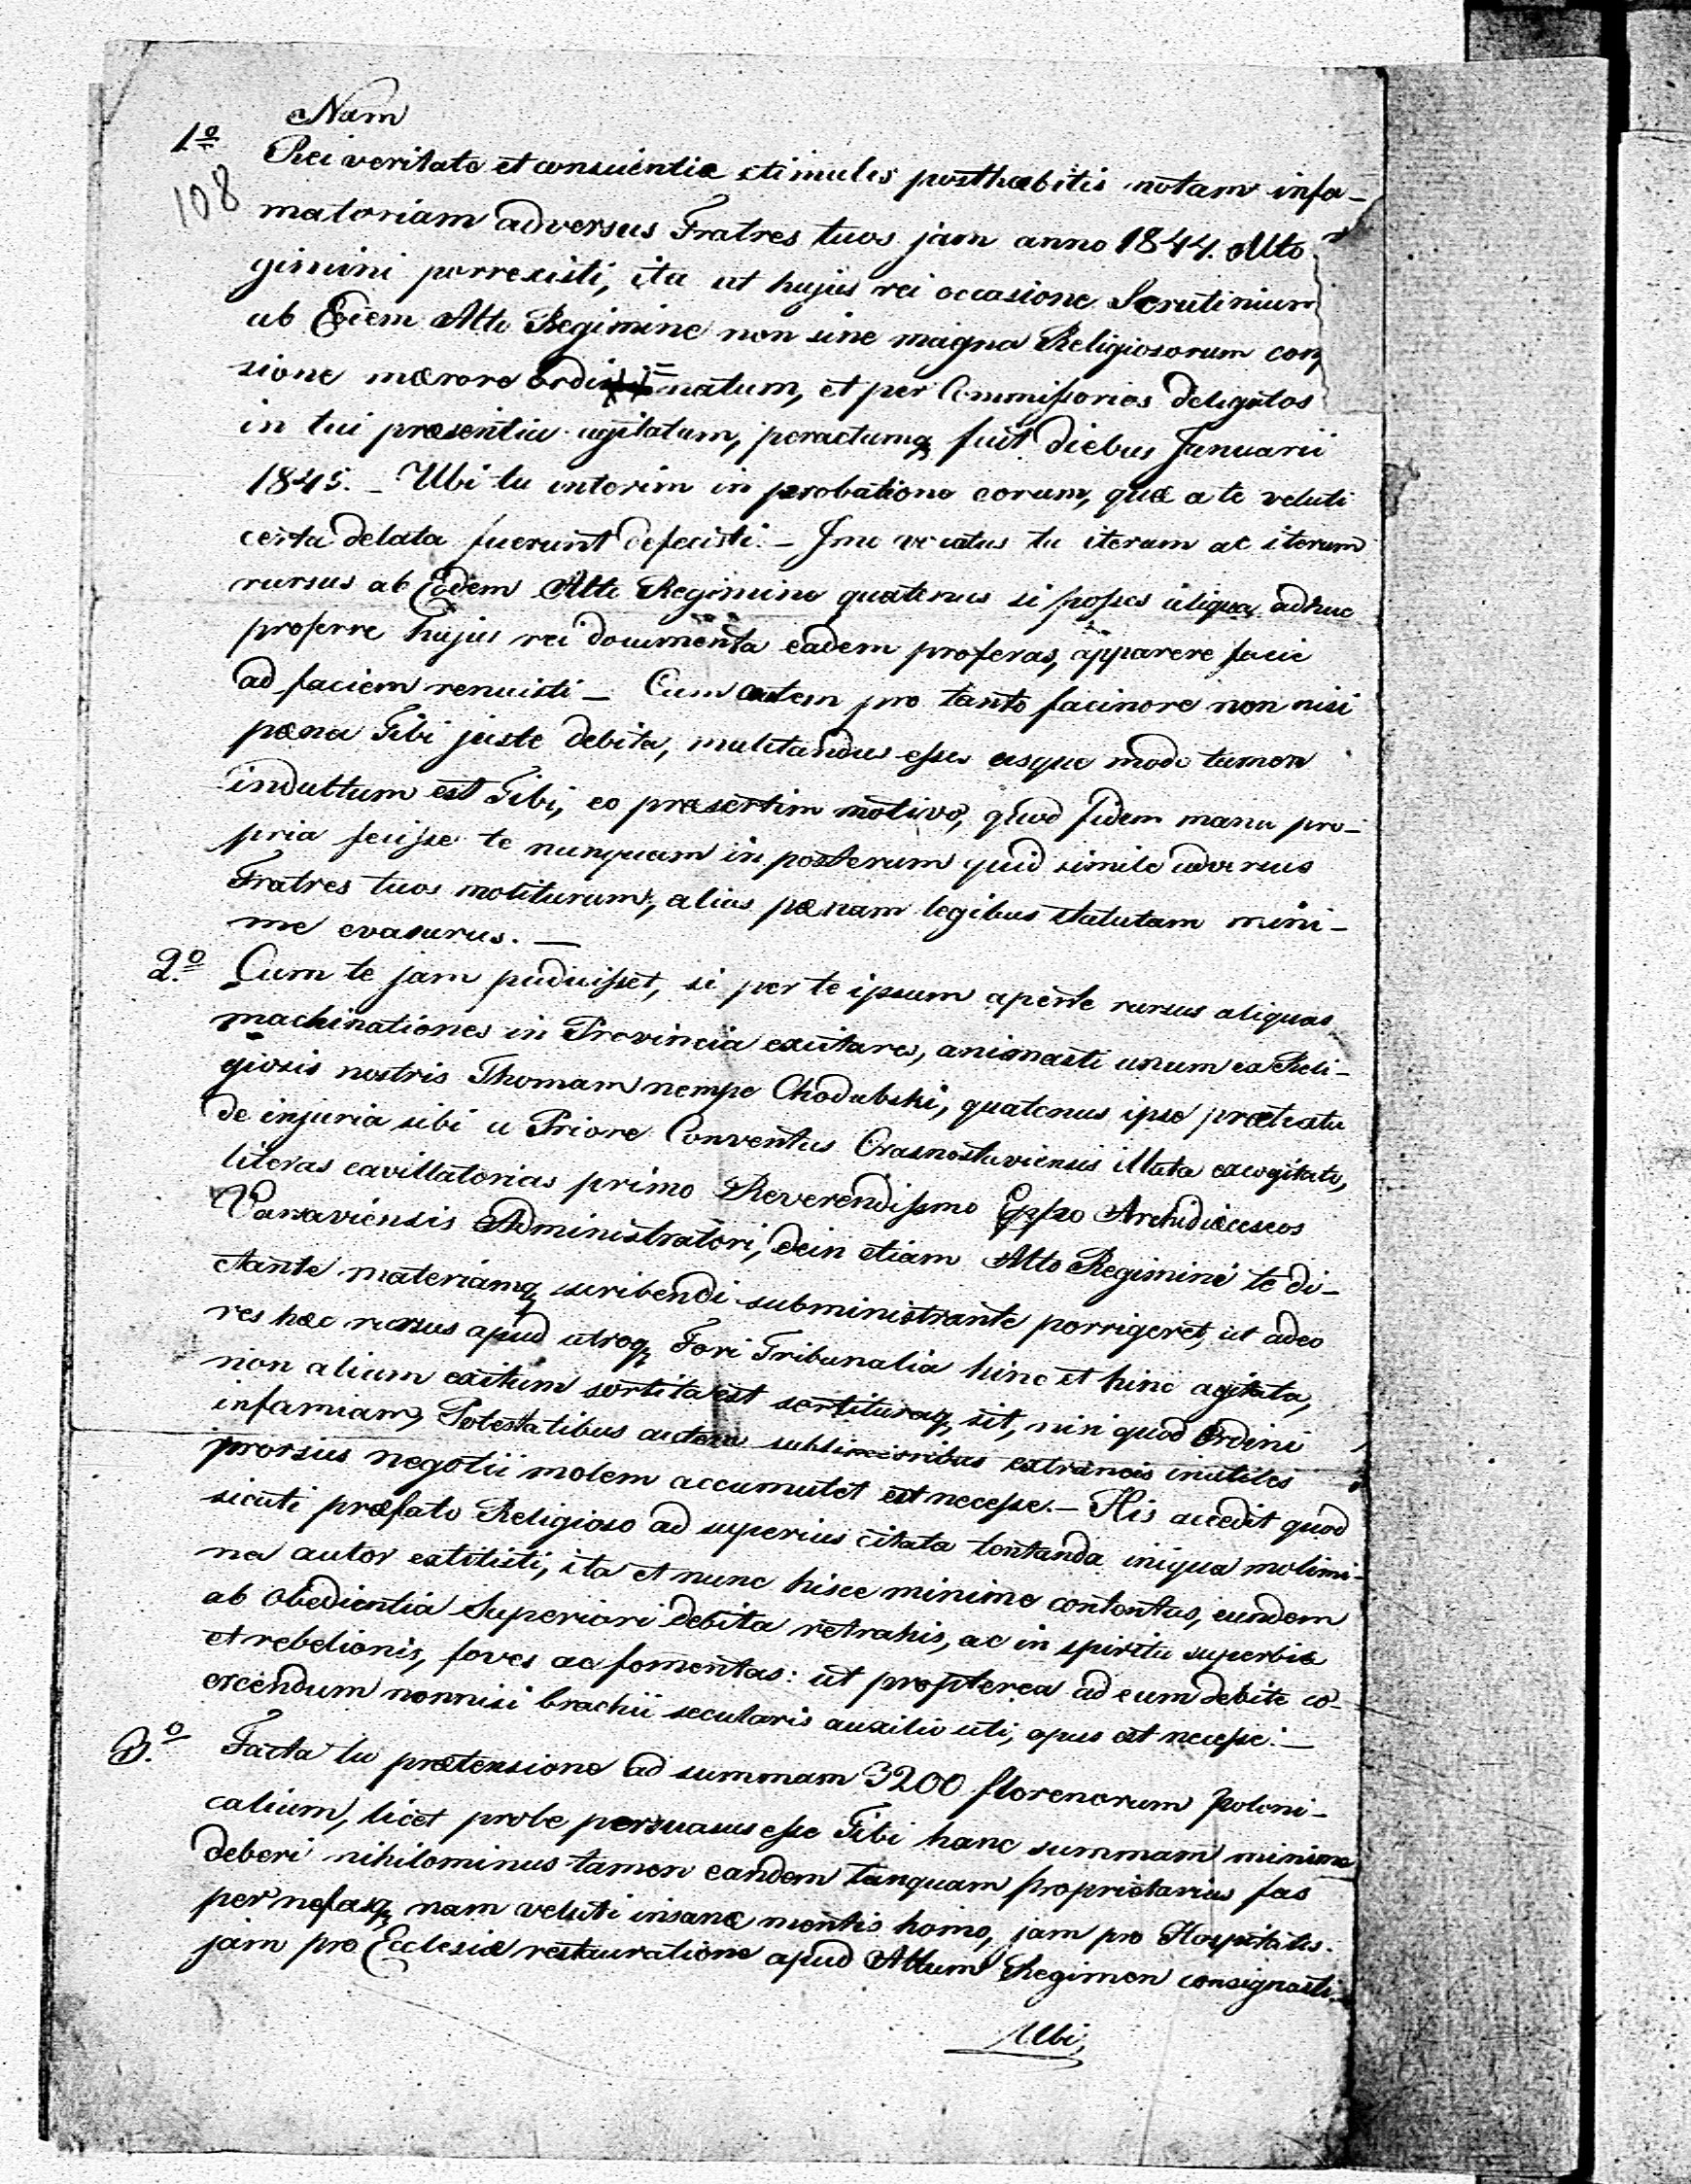 Nam
1o Rei veritate et conscientiæ stimulis posthabitis notam infa-
108
matoriam adversus Fratres tuos jam anno 1844. Alto
gimini porrexisti, ita ut hujus rei occasione Scrutinium
ab Eodem Alto Regimine non sine magna Religiosorum con
sione mærore ordi=natum, et per Commissarios delegatos
in tui præsentia agitatum, peractumq fuit diebus Januarii
1845. - Ubi tu interim in probatione eorum, quæ a te veluti
certa delata fuerunt defecisti. - Imo vocatus tu iterum ac iterum
rursus ab Eodem Alto Regimine quatenus si posses aliqua adhuc
proferre hujus rei documenta eadem proferas, apparere facie
ad faciem renuisti - Cum autem pro tanto facinore non nisi
pæna Tibi juste debita, mulctandus esses usque modo tamen
indultum est Tibi, eo præsertim motivo, quod fidem manu pro-
pria fecisse te nunquam in posterum quid simile adversus
Fratres tuos moliturum, alias pænam legibus statutam mini-
me evasurus. -
2.o Cum te jam puduisset, si per te ipsum aperte rursus aliquas
machinationes in Provincia excitares, animasti unum ex Reli-
giosis nostris Thomam nempe Chodubski, quatenus ipse prætextu
de injuria sibi a Priore Conventus Crasnostaviensis illata excogitato,
literas cavillatorias primo Reverendissmo Eppo Archidiæceseos
Varsaviensis Administratori, dein etiam Alto Regimini te di-
ctante materiamq scribendi subministrante porrigeret, ut adeo
res hæc rursus apud utroq Fori Tribunalia hinc et hinc agitata,
non alium exitum sortita est sortituraq sit, nisi quod Ordini
infamiam, Potestatibus autem sublimioribus extraneis inutiles
prorsus negotii molem accumulet est necesse. - His accedit quod
sicuti præfato Religioso ad superius citata tentanda iniqua molimi-
na autor extitisti, ita et nunc hisce minime contentus, eundem
ab obedientia Superiori debita retrahis, ac in spiritu superbiæ
et rebelionis, foves ac fomentas: ut propterea ad eum debite co-
ercendum nonnisi brachii secularis auxilio uti, opus est necesse. -
3.o Facta tu prætensione ad summam 3200 florenorum Poloni-
calium, licet probe persuasus esse Tibi hanc summam minime
deberi nihilominus tamen eandem tanquam proprietarius fas
per nefasq nam veluti insanæ mentis homo, jam pro Hospitalis.
jam pro Ecclesiæ restauratione apud Altum Regimen consignasti.
Ubi,